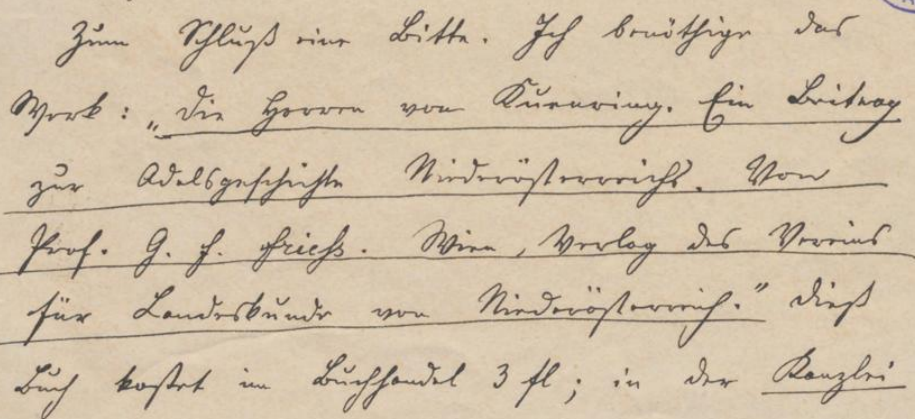 Zum Schluß eine Bitte. Ich benöthige das
Werk: „Die Herren von Kuenring. Ein Beitrag
zur Adelsgeschichte Niederösterreichs. Von
Prof. G. E. Friess. Wien, Verlag des Vereins
für Landeskunde von Niederösterreich.“ Dieß
Buch kostet im Buchhandel 3 fl; in der Kanzlei